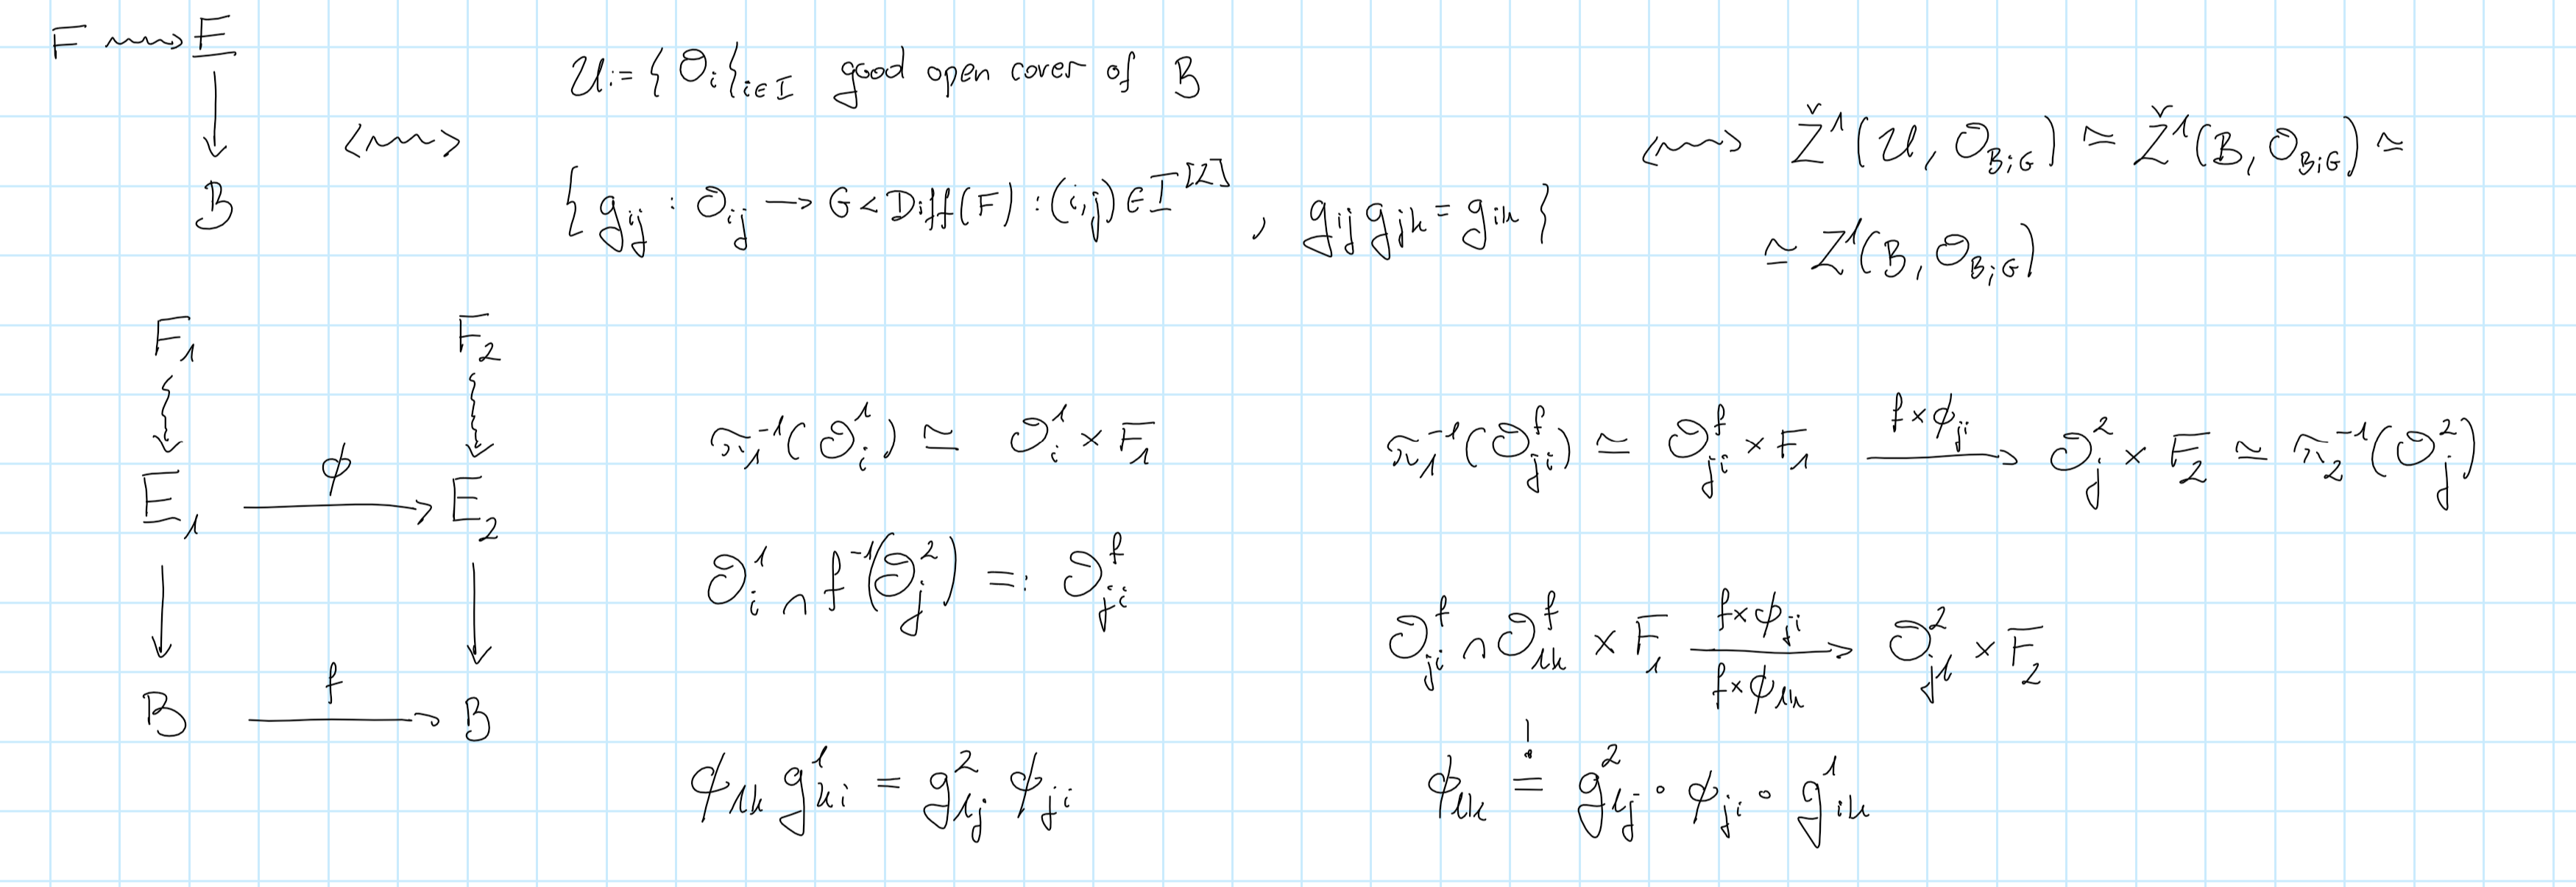 F ⇝ E
↓
B
⟷
𝒰 := {𝒪_i}_{i∈I} good open cover of B
{ g_{ij} : 𝒪_{ij} → G < Diff(F) : (i,j) ∈ I^{[2]} , g_{ij} g_{jk} = g_{ik} }
⟷ Ž^1(𝒰, 𝒪_{B;G}) ≃ Ž^1(B, 𝒪_{B;G}) ≃
≃ Z^1(B, 𝒪_{B;G})
F_1 F_2
E_1 —ϕ→ E_2
B —f→ B
π_1^{-1}(𝒪_i^1) ≃ 𝒪_i^1 × F_1
𝒪_i^1 ∩ f^{-1}(𝒪_j^2) =: 𝒪_{ji}^f
ϕ_{lk} g_{ki}^1 = g_{lj}^2 ϕ_{ji}
π_1^{-1}(𝒪_{ji}^f) ≃ 𝒪_{ji}^f × F_1 —f×ϕ_{ji}→ 𝒪_j^2 × F_2 ≃ π_2^{-1}(𝒪_j^2)
𝒪_{ji}^f ∩ 𝒪_{lk}^f × F_1 —f×ϕ_{ji}→ 𝒪_{jl}^2 × F_2
f×ϕ_{lk}
ϕ_{lk} =^! g_{lj}^2 ∘ ϕ_{ji} ∘ g_{ik}^1